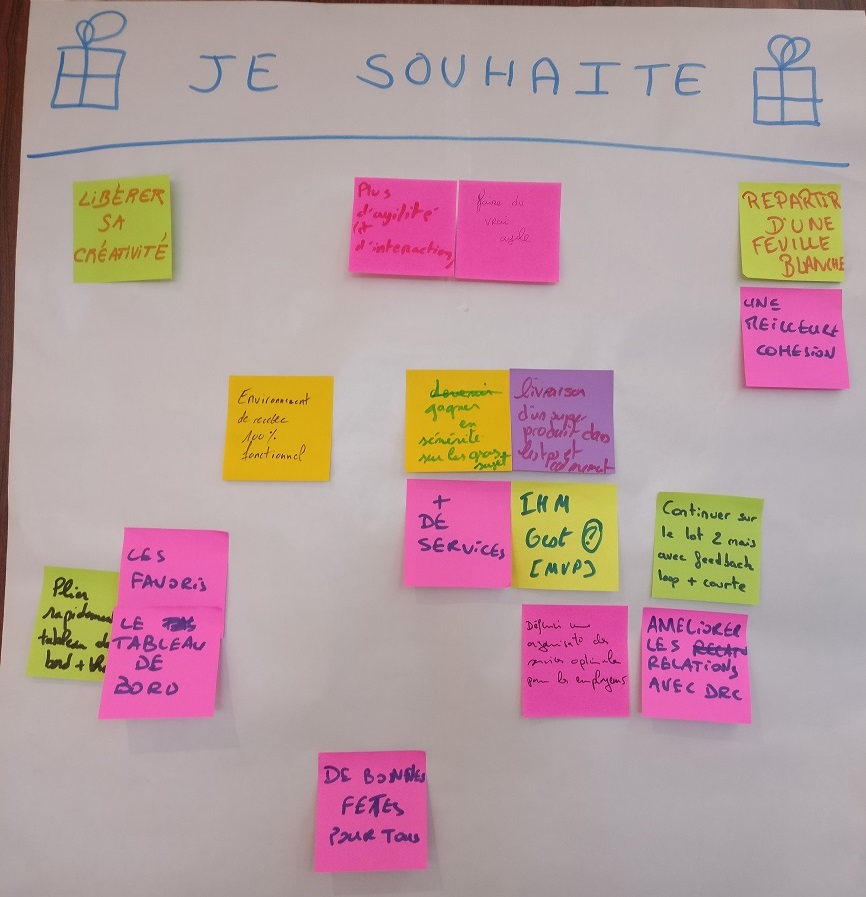 JE SOUHAITE
LIBÉRER
SA
CRÉATIVITÉ
Plus
d'agilité
et
d'interaction
faire du
vrai
agile
REPARTIR
D'UNE
FEUILLE
BLANCHE
UNE
MEILLEURE
COHESION
Environnement
de recette
100%
fonctionnel
devenir
gagner
en
sérénité
sur les gros
sujet
livraison
d'un super
produit dans
les tps et
+
DE
SERVICES
IHM
Gest ?
[MVP]
Continuer sur
le lot 2 mais
avec feedback
loop + courte
LES
FAVORIS
Plier
rapidement
tableau de
bord +
LE
TABLEAU
DE
BORD
Définir une
de
services optimale
pour les employeurs
AMELIORER
LES
RELATIONS
AVEC DRC
DE BONNES
FETES
POUR TOUS